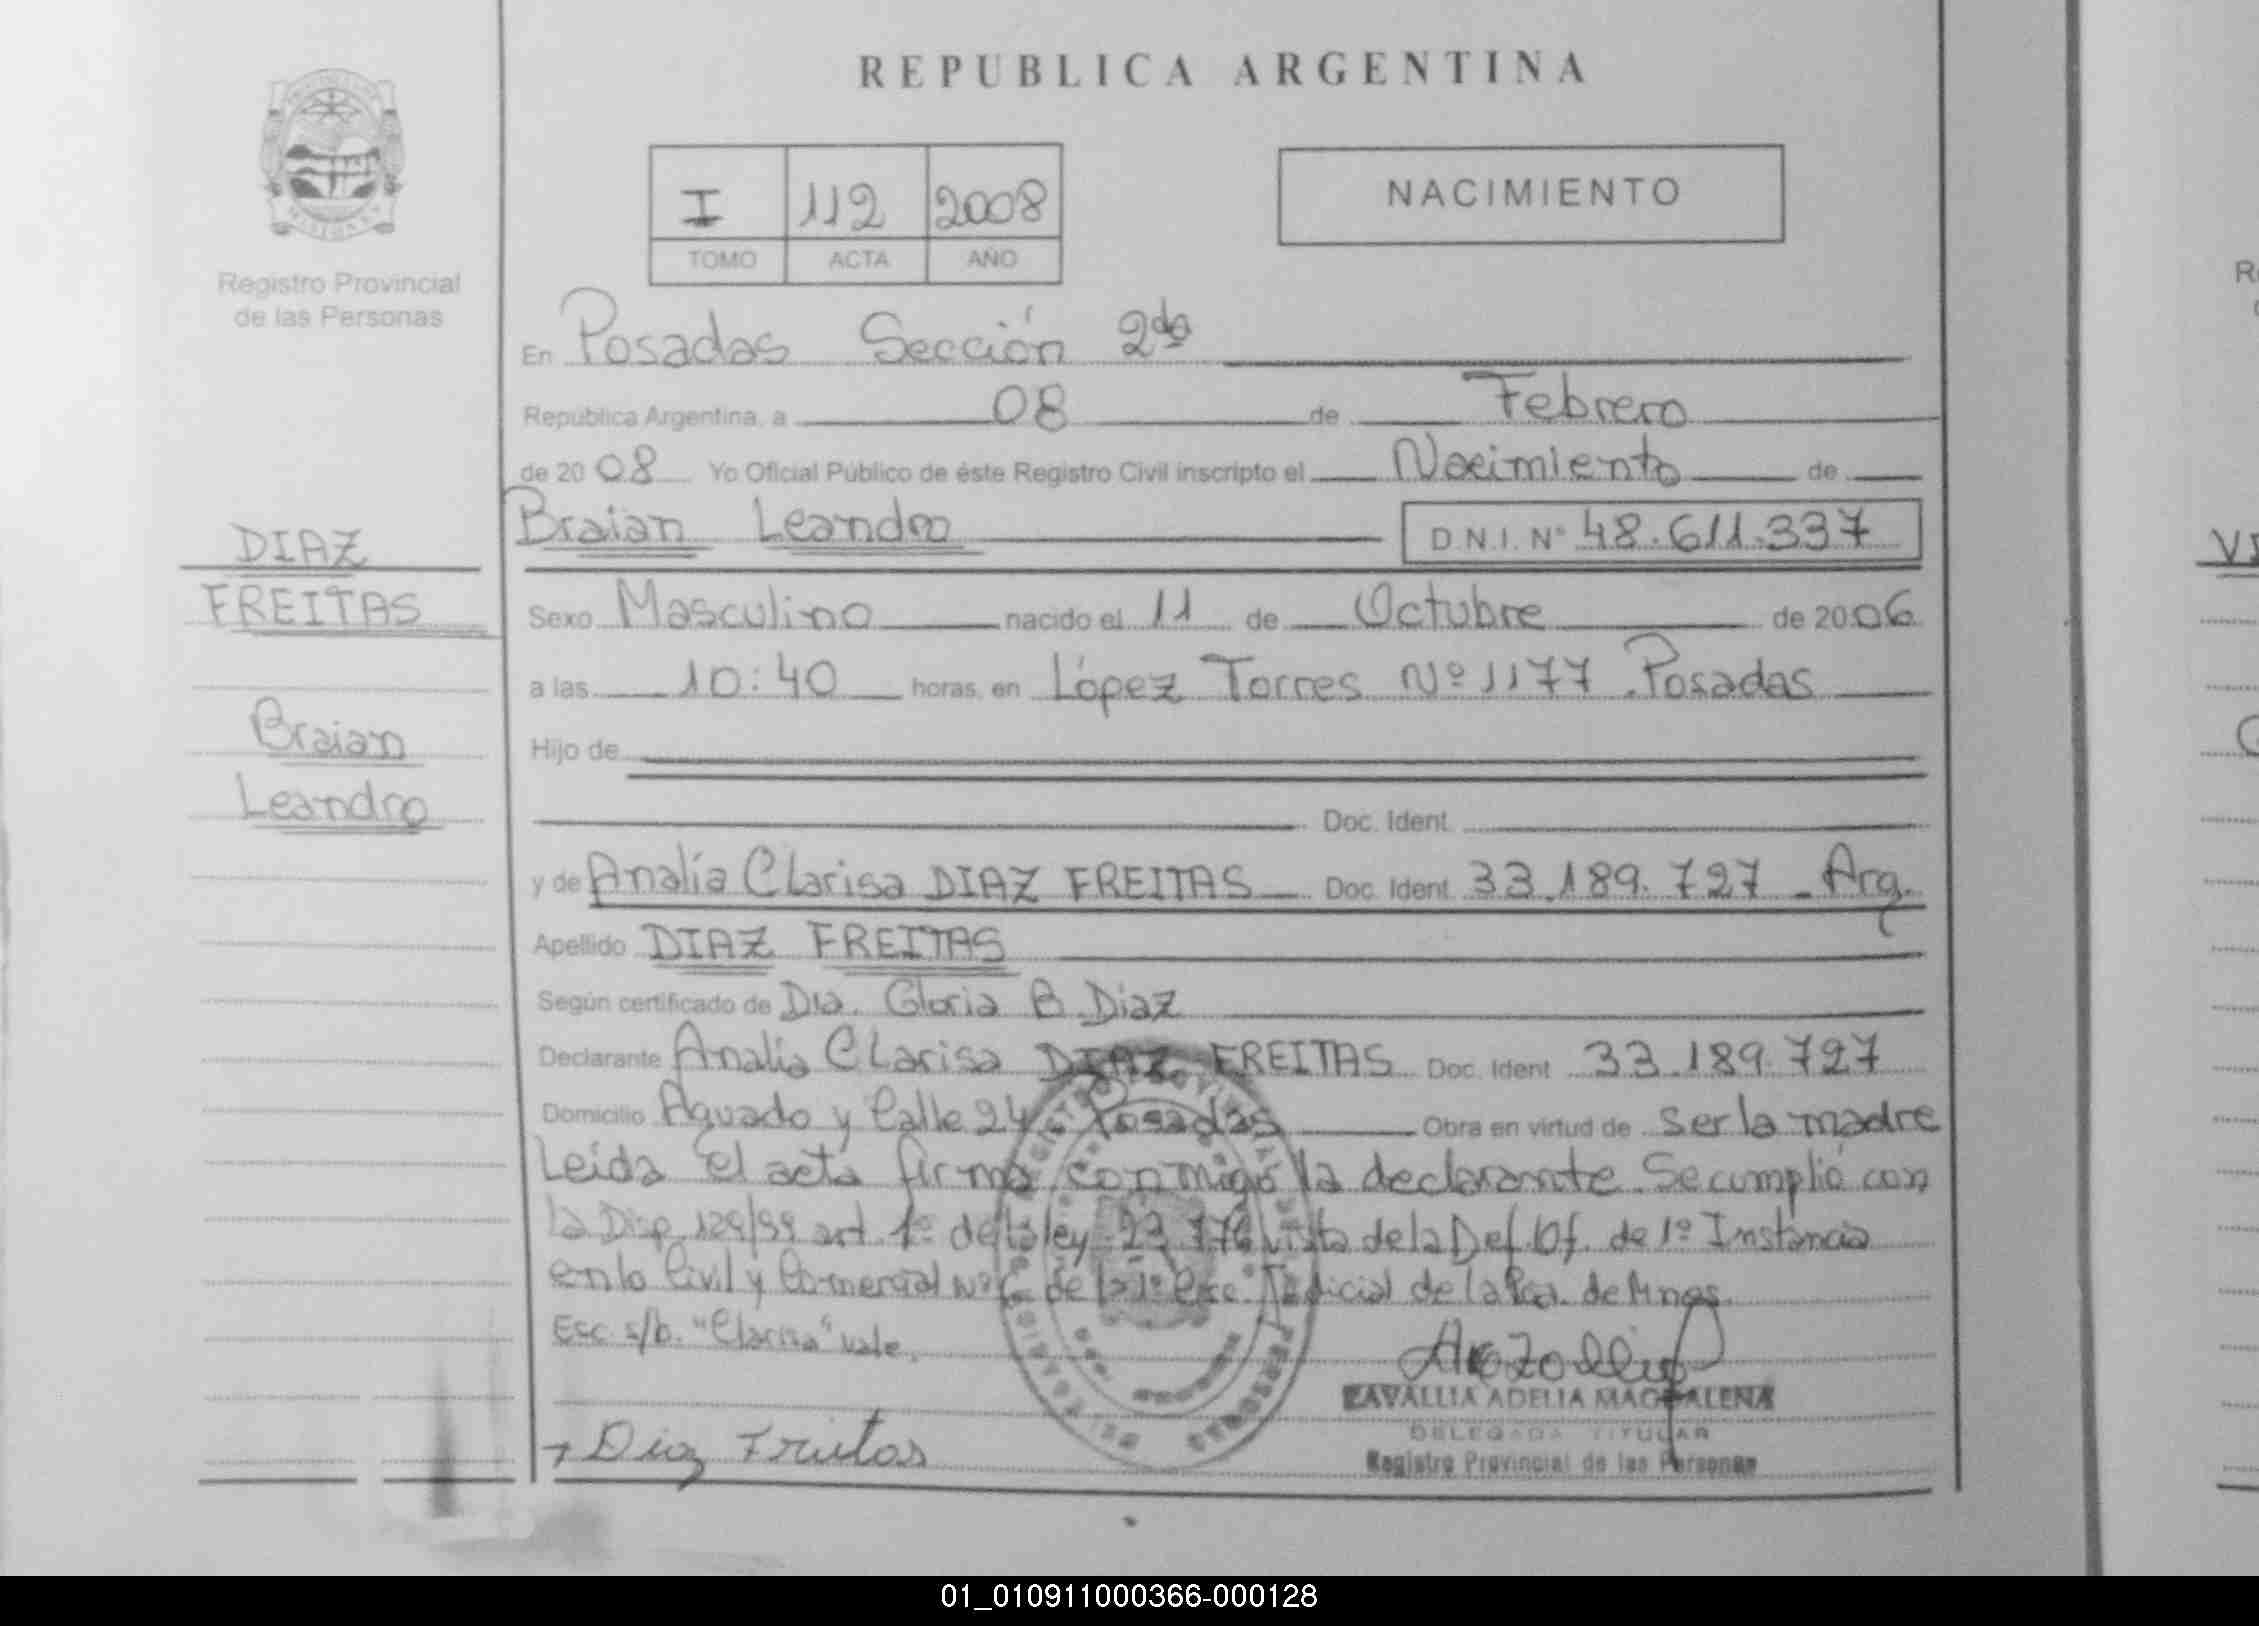 REPUBLICA ARGENTINA
I 112 2008
TOMO ACTA AÑO
NACIMIENTO
Registro Provincial
de las Personas
DIAZ
FREITAS
Braian
Leandro
En Posadas Sección 2da
República Argentina, a 08 de Febrero
de 2008 Yo Oficial Público de éste Registro Civil inscripto el Nacimiento de
Braian Leandro D.N.I. Nº 48.611.337
Sexo Masculino nacido el 11 de Octubre de 2006
a las 10:40 horas, en López Torres Nº 1177 Posadas
Hijo de
Doc. Ident.
y de Analía Clarisa DIAZ FREITAS Doc. Ident. 33.189.727 - Arg.
Apellido DIAZ FREITAS
Según certificado de Dra. Gloria B. Diaz
Declarante Analia Clarisa DIAZ FREITAS Doc. Ident. 33.189.727
Domicilio Aguado y Calle 24 Posadas Obra en virtud de ser la madre
Leída el acta firma conmigo la declarante. Se cumplió con
la Disp. 129/99 art. 1º de la ley 23.776 vista de la Def. Of. de 1º Instancia
en lo Civil y Comercial Nº de la 1º Judicial de la Pcia. de Mnes.
Esc. s/b. "Clarisa" vale.
ZAVALLIA ADELIA MAGDALENA
DELEGADA TITULAR
Registro Provincial de las Personas
Diaz Freitas
01_010911000366-000128